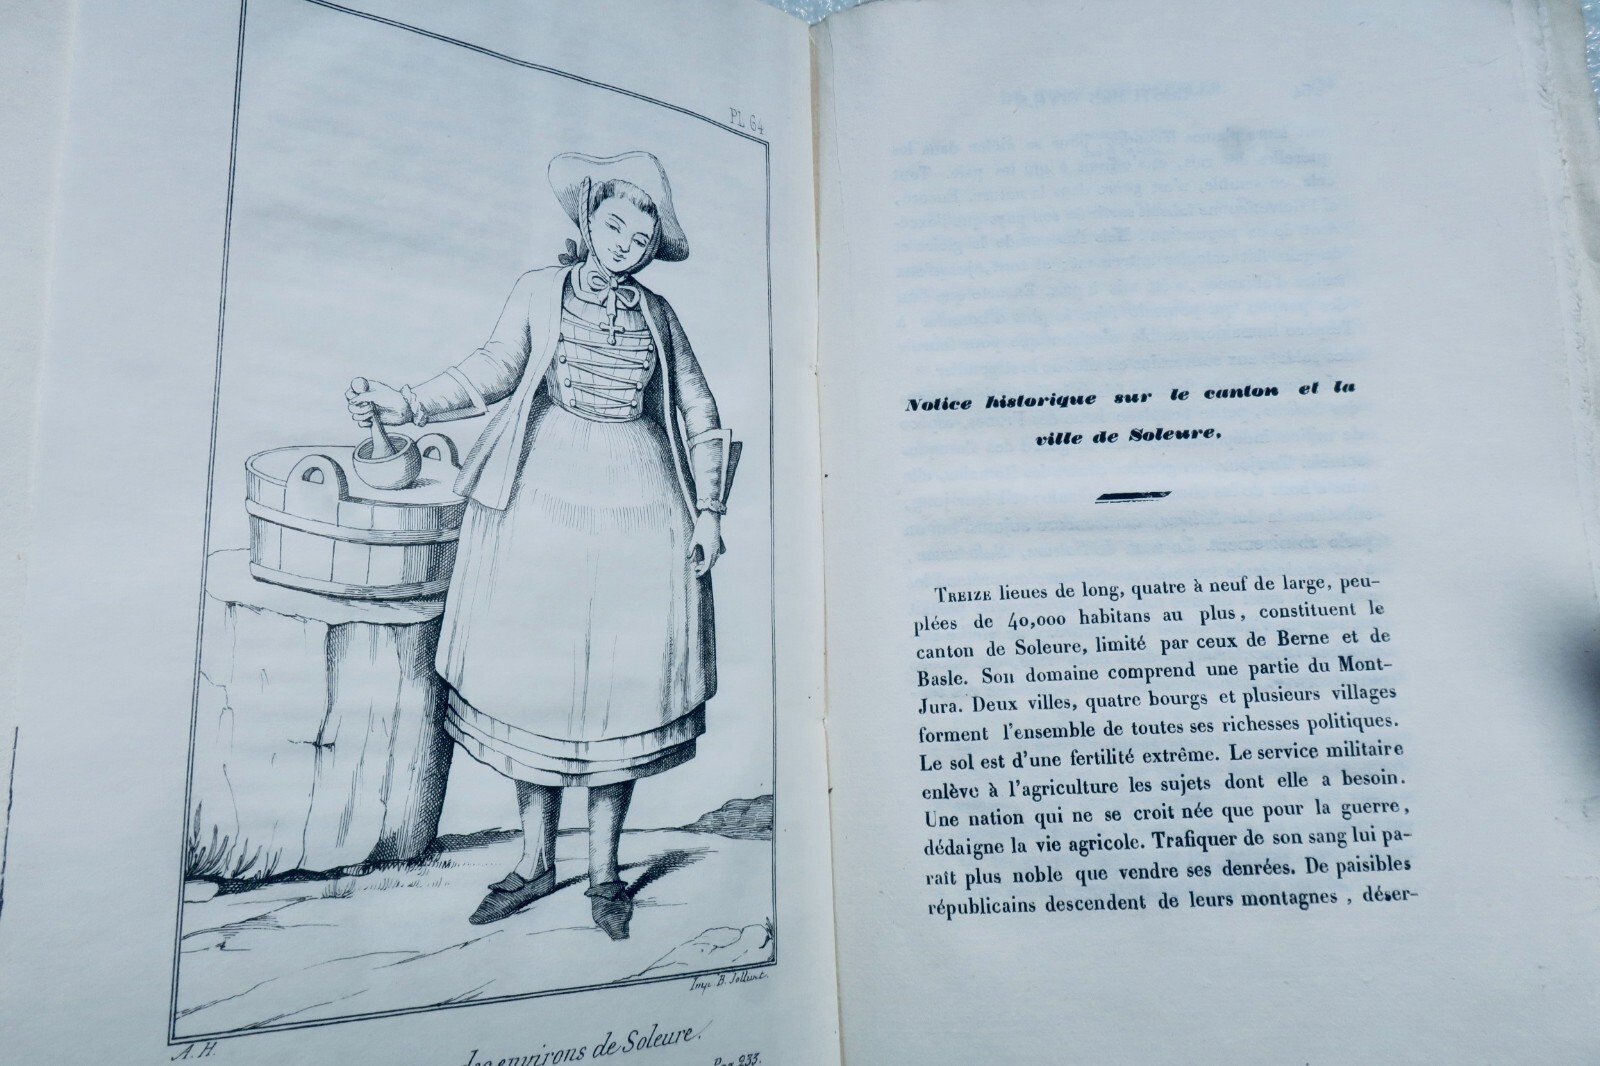 PL 64.
A. H.
des environs de Soleure.
Pag 233.
Notice historique sur le canton et la
ville de Soleure.
Treize lieues de long, quatre à neuf de large, peu-
plées de 40,000 habitans au plus, constituent le
canton de Soleure, limité par ceux de Berne et de
Basle. Son domaine comprend une partie du Mont-
Jura. Deux villes, quatre bourgs et plusieurs villages
forment l'ensemble de toutes ses richesses politiques.
Le sol est d'une fertilité extrême. Le service militaire
enlève à l'agriculture les sujets dont elle a besoin.
Une nation qui ne se croit née que pour la guerre,
dédaigne la vie agricole. Trafiquer de son sang lui pa-
raît plus noble que vendre ses denrées. De paisibles
républicains descendent de leurs montagnes, déser-